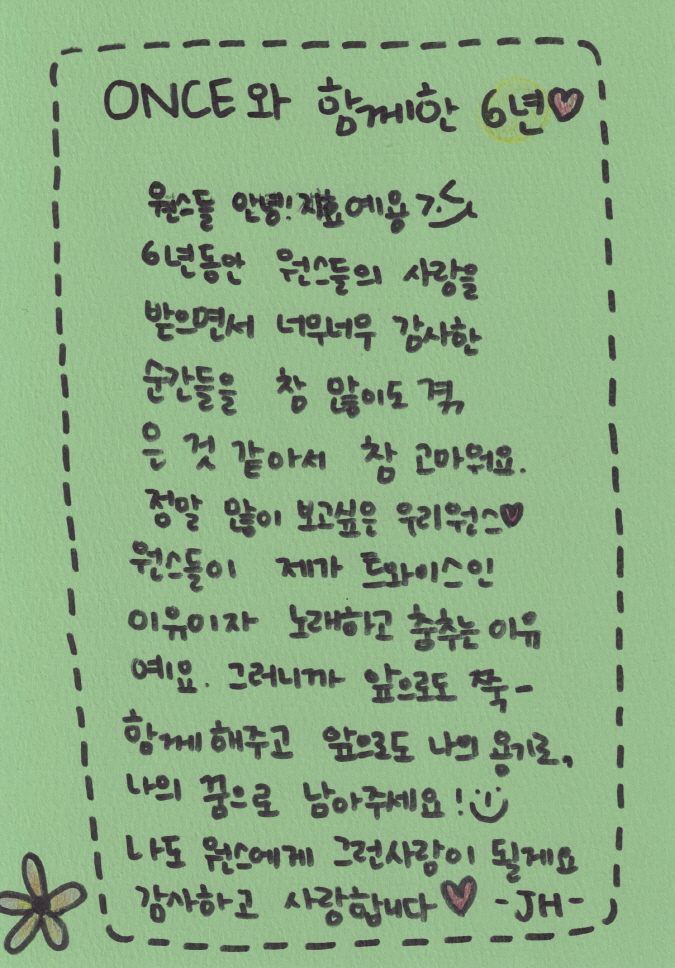 ONCE와 함께한 6년♥
원스들 안녕! 지효예용
6년동안 원스들의 사랑을
받으면서 너무너무 감사한
순간들을 참 많이도 겪
은 것 같아서 참 고마워요.
정말 많이 보고싶은 우리원스♥
원스들이 제가 트와이스인
이유이자 노래하고 춤추는 이유
예요. 그러니까 앞으로도 쭉-
함께해주고 앞으로도 나의 용기로,
나의 꿈으로 남아주세요!
나도 원스에게 그런사람이 될게요
감사하고 사랑합니다♥ -JH-